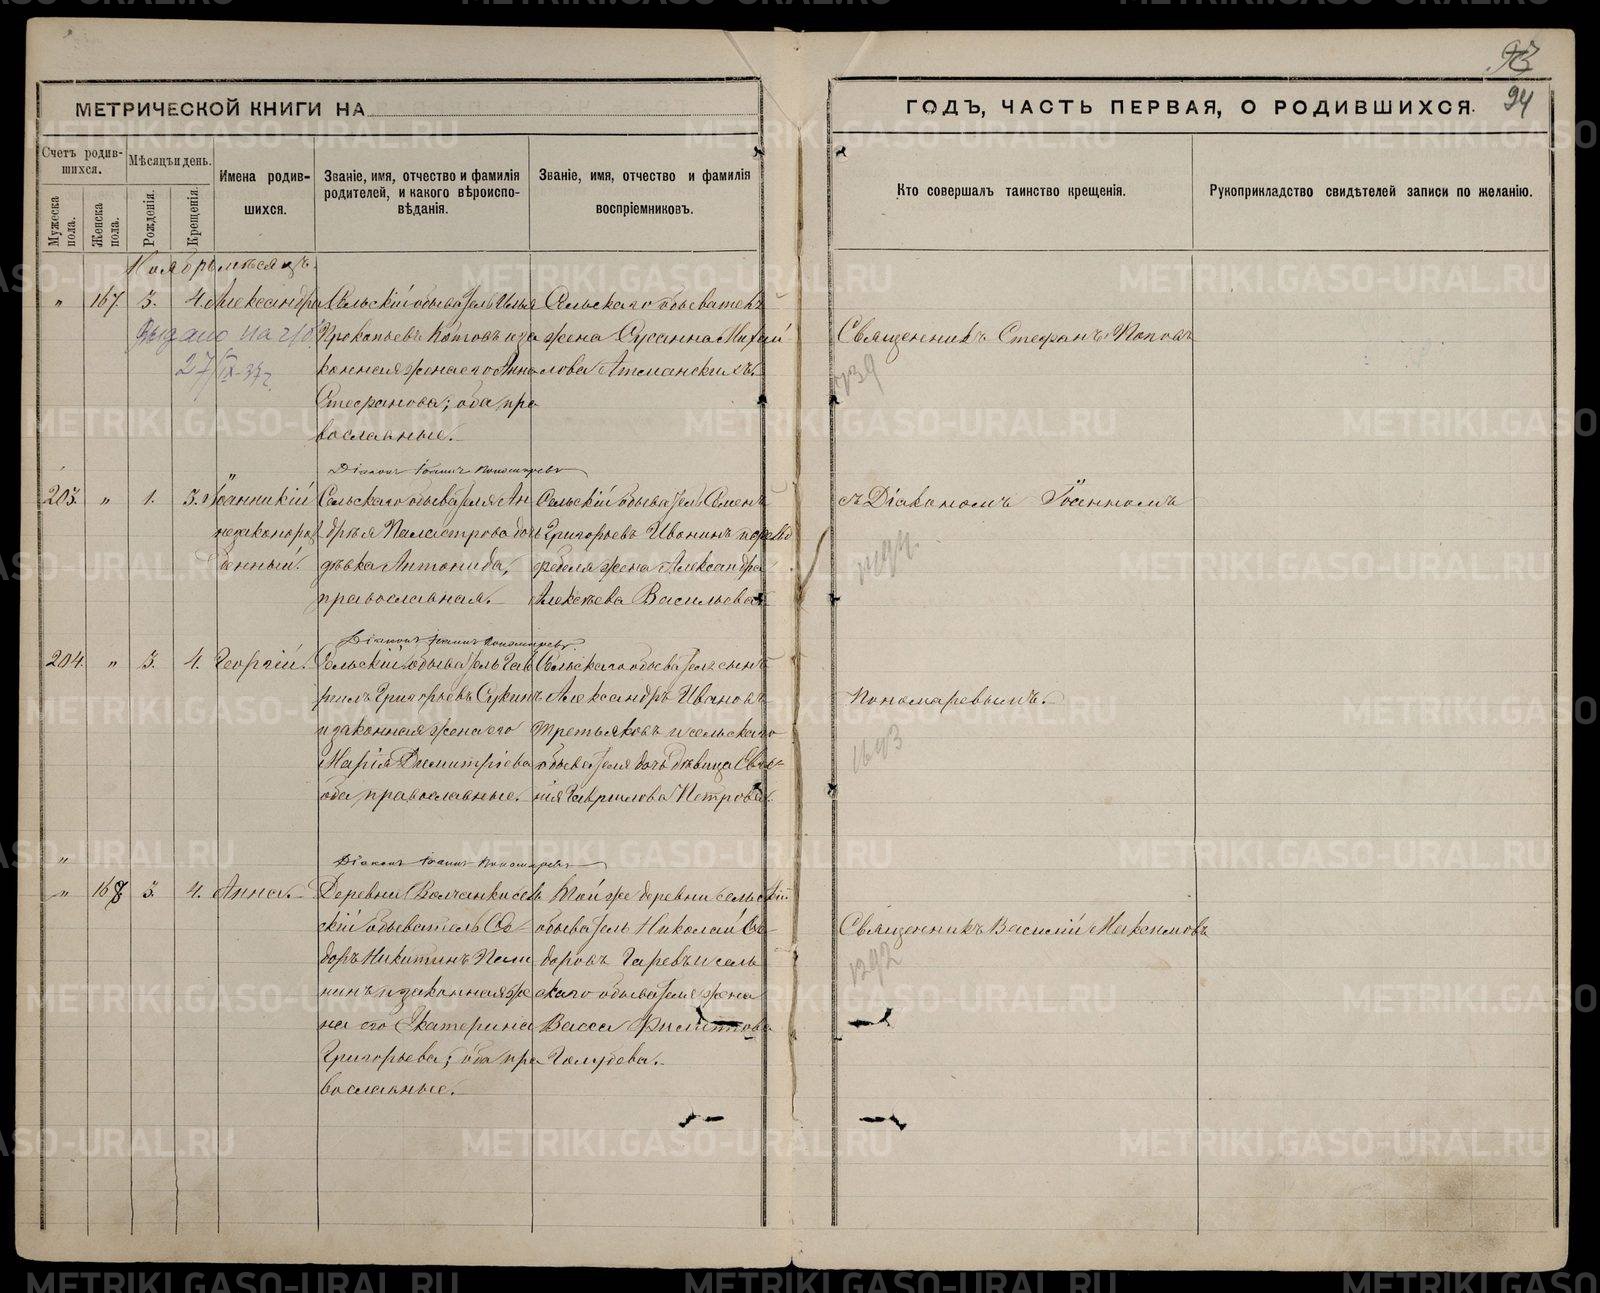 93
94
МЕТРИЧЕСКОЙ КНИГИ НА
ГОДЪ, ЧАСТЬ ПЕРВАЯ, О РОДИВШИХСЯ.
Счетъ родив-
шихся.
Мѣсяцъ и день.
Имена родив-
шихся.
Званіе, имя, отчество и фамилія
родителей, и какого вѣроиспо-
вѣданія.
Званіе, имя, отчество и фамилія
воспріемниковъ.
Кто совершалъ таинство крещенія.
Рукоприкладство свидѣтелей записи по желанію.
Мужеска
пола.
Женска
пола.
Рожденія.
Крещенія.
Ноябрь мѣсяцъ.
" 167 3. 4. Александра
Сельскій обыватель Илья
Прокопьевъ Котовъ и за
конная жена его Анна
Стефанова; оба пра
вославные.
Сельскаго обывателя
жена Сусанна Михай
лова Атманскихъ.
Священникъ Стефанъ Поповъ
Выдано на
27/IX-37г.
739
Діаконъ Іоаннъ Пономаревъ
203. " 1. 3. Іоанникій
незаконорож
денный.
Сельскаго обывателя Ан
дрея Паластрова дочь
дѣвка Антонида,
православная.
Сельскій обыватель Семенъ
Григорьевъ Ивонинъ и
жена Александра
Алексѣева Васильева
съ Діакономъ Іоанномъ
Діаконъ Іоаннъ Пономаревъ
204. " 3. 4. Георгій.
Сельскій обыватель Гав
риилъ Григорьевъ Сукинъ
и законная жена его
Марія Димитріева
оба православные.
Сельскаго обывателя сынъ
Александръ Ивановъ
Третьяковъ и сельскаго
обывателя дочь дѣвица Евге-
нія Гаврилова Петрова.
Пономаревымъ.
1693
Діаконъ Іоаннъ Пономаревъ
" 168 3. 4. Анна.
Деревни Волчанки сель
скій обыватель Ѳе
доръ Никитинъ
и законная же
на его Екатерина
Григорьева; оба пра
вославные.
Той же деревни сельскій
обыватель Николай Ѳе
доровъ Царевъ и сель
скаго обывателя жена
Васса Филиппова
Голубева.
Священникъ Василій Максимовъ
1292
METRIKI.GASO-URAL.RU